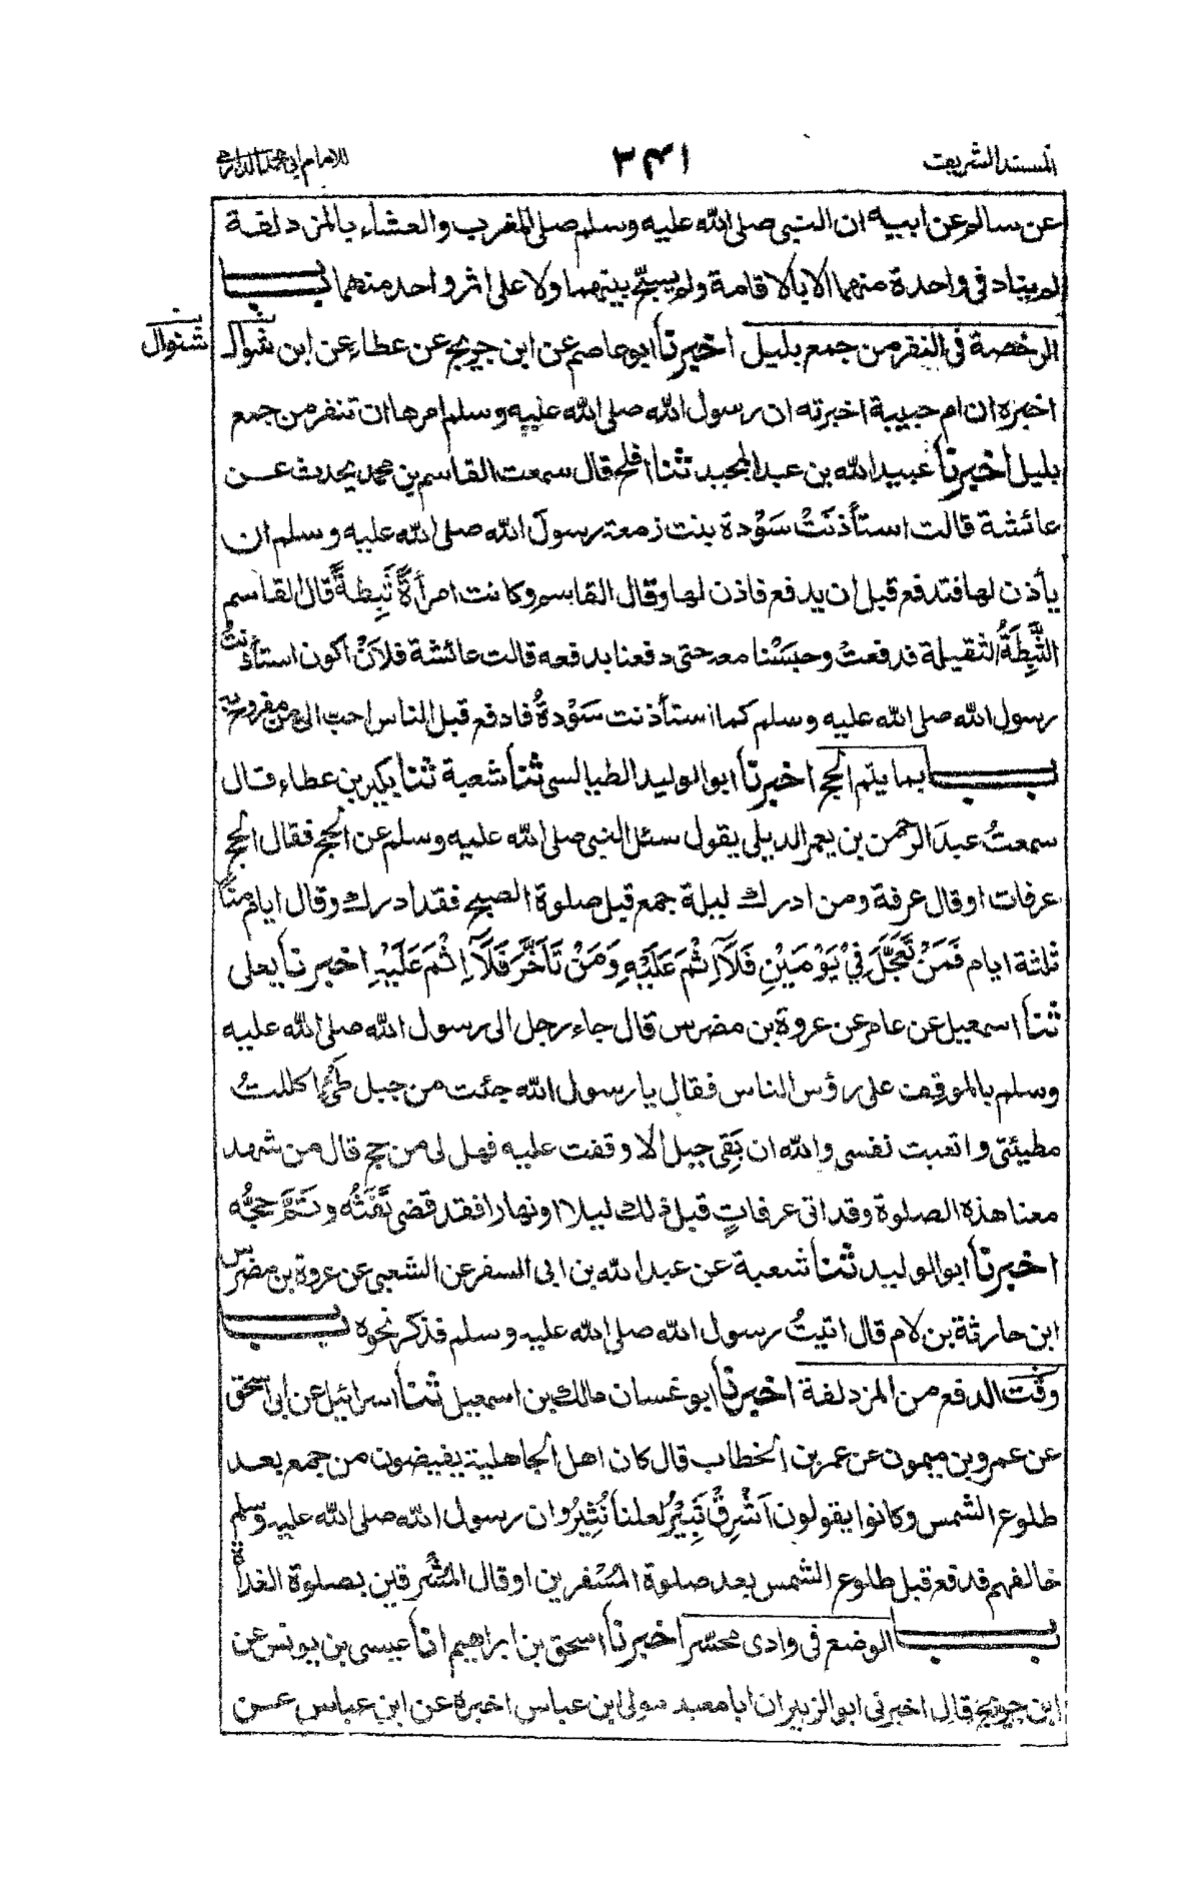 المسند الشريف ٢٤١ للامام ابي محمد الدارمي
عن سالم عن ابيه ان النبي صلى الله عليه وسلم صلى المغرب والعشاء بالمزدلفة
لم يناد في واحدة منهما الا بالاقامة ولم يسبح بينهما ولا على اثر واحد منهما باب
الرخصة في النفر من جمع بليل اخبرنا ابو عاصم عن ابن جريج عن عطاء عن ابن شوال
شنوال
اخبره ان ام حبيبة اخبرته ان رسول الله صلى الله عليه وسلم امرها ان تنفر من جمع
بليل اخبرنا عبيد الله بن عبد المجيد ثنا افلح قال سمعت القاسم بن محمد يحدث عن
عائشة قالت استأذنَتْ سَوْدة بنت زمعة رسولَ الله صلى الله عليه وسلم ان
يأذن لها فتدفع قبل ان يدفع فاذن لها وقال القاسم وكانت امرأةً ثَبِطَةً قال القاسم
الثَّبِطَةُ الثقيلة فدفعتْ وحبسْنا معه حتى دفعنا بدفعه قالت عائشة فلأَنْ اكون استأذنتُ
رسول الله صلى الله عليه وسلم كما استأذنت سَوْدةُ فادفع قبل الناس احب الي من مفروح به
باب بما يتم الحج اخبرنا ابو الوليد الطيالسي ثنا شعبة ثنا بكير بن عطاء قال
سمعتُ عبدَ الرحمن بن يعمر الديلي يقول سئل النبي صلى الله عليه وسلم عن الحج فقال الحج
عرفات او قال عرفة ومن ادرك ليلة جمع قبل صلوة الصبح فقد ادرك وقال ايام منًى
ثلثة ايام فَمَنْ تَعَجَّلَ فِيْ يَوْمَيْنِ فَلَآ اِثْمَ عَلَيْهِ وَمَنْ تَأَخَّرَ فَلَآ اِثْمَ عَلَيْهِ اخبرنا يعلى
ثنا اسمعيل عن عامر عن عروة بن مضرس قال جاء رجل الى رسول الله صلى الله عليه
وسلم بالموقف على رؤس الناس فقال يا رسول الله جئت من جبل طيء اكللتُ
مطيئتي واتعبت نفسي والله ان بَقِي جبل الا وقفت عليه فهل لي من حج قال من شهد
معنا هذه الصلوة وقد اتى عرفاتٍ قبل ذلك ليلا او نهارا فقد قضى تَفَثُه وتَمَّ حجُّه
اخبرنا ابو الوليد ثنا شعبة عن عبد الله بن ابي السفر عن الشعبي عن عروة بن مضرس
ابن حارثة بن لام قال اتيتُ رسول الله صلى الله عليه وسلم فذكر نحوه باب
وقت الدفع من المزدلفة اخبرنا ابو غسان مالك بن اسمعيل ثنا اسرائيل عن ابي اسحق
عن عمرو بن ميمون عن عمر بن الخطاب قال كان اهل الجاهلية يفيضون من جمع بعد
طلوع الشمس وكانوا يقولون اَشْرِقْ ثَبِيْرُ لعلنا نُغِيْرُ وان رسول الله صلى الله عليه وسلم
خالفهم فدفع قبل طلوع الشمس بعد صلوة المُسْفرين او قال المُشْرقين بصلوة الغداة
باب الوضع في وادي محسّر اخبرنا اسحق بن ابراهيم انا عيسى بن يونس عن
ابن جريج قال اخبرني ابو الزبير ان ابا معبد مولى ابن عباس اخبره عن ابن عباس عن